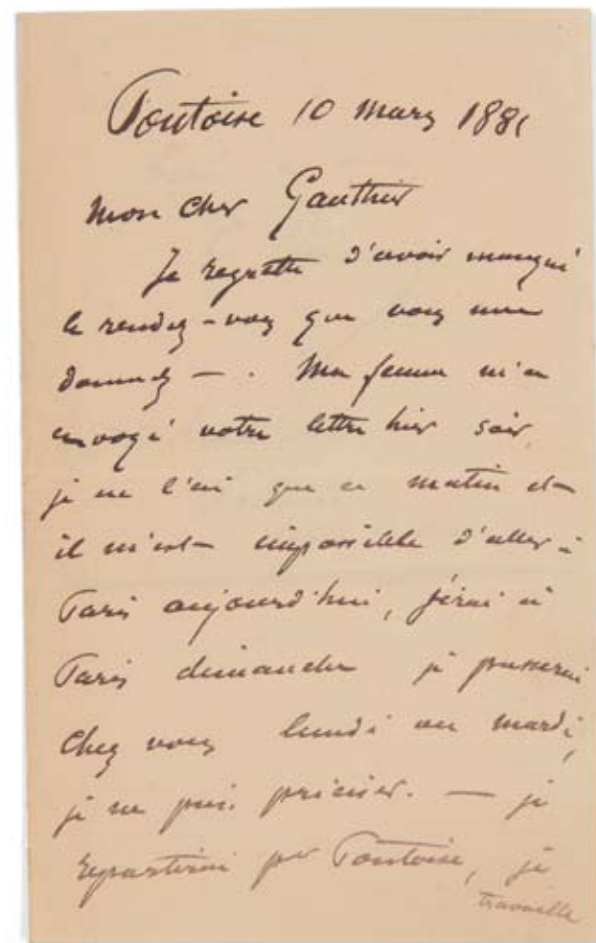 Pontoise 10 mars 1881
Mon cher Gauthier
Je regrette d'avoir manqué
le rendez-vous que vous me
donnez — . Ma femme m'a
envoyé votre lettre hier soir,
je ne l'ai que ce matin et
il m'est impossible d'aller à
Paris aujourd'hui, j'irai à
Paris dimanche je passerai
chez vous lundi ou mardi,
je ne puis préciser. — je
repartirai pr Pontoise, je
travaille